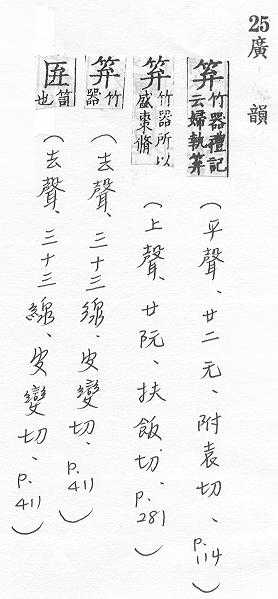 25廣韻
笲竹器禮記云婦執笲(平聲、廿二元、附袁切、p.114)
笲竹器所以盛棗脩(上聲、廿阮、扶飯切、p.281)
笲竹器(去聲、三十三線、皮變切、p.411)
匥笥也(去聲、三十三線、皮變切、p.411)